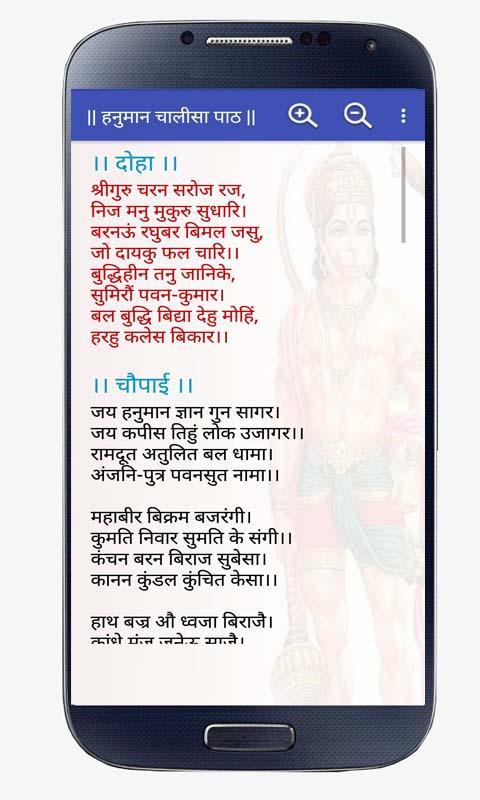 || हनुमान चालीसा पाठ ||
।। दोहा ।।
श्रीगुरु चरन सरोज रज,
निज मनु मुकुरु सुधारि।
बरनऊं रघुबर बिमल जसु,
जो दायकु फल चारि।।
बुद्धिहीन तनु जानिके,
सुमिरौं पवन-कुमार।
बल बुद्धि बिद्या देहु मोहिं,
हरहु कलेस बिकार।।
।। चौपाई ।।
जय हनुमान ज्ञान गुन सागर।
जय कपीस तिहुं लोक उजागर।।
रामदूत अतुलित बल धामा।
अंजनि-पुत्र पवनसुत नामा।।
महाबीर बिक्रम बजरंगी।
कुमति निवार सुमति के संगी।।
कंचन बरन बिराज सुबेसा।
कानन कुंडल कुंचित केसा।।
हाथ बज्र औ ध्वजा बिराजै।
कांधे मूंज जनेऊ साजै।